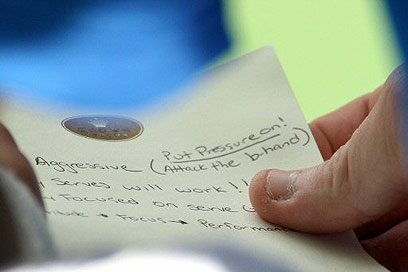 Put Pressure on!
Aggressive (Attack the b-hand)
Serves will work!!
Focused on serve
→ Focus → Performan